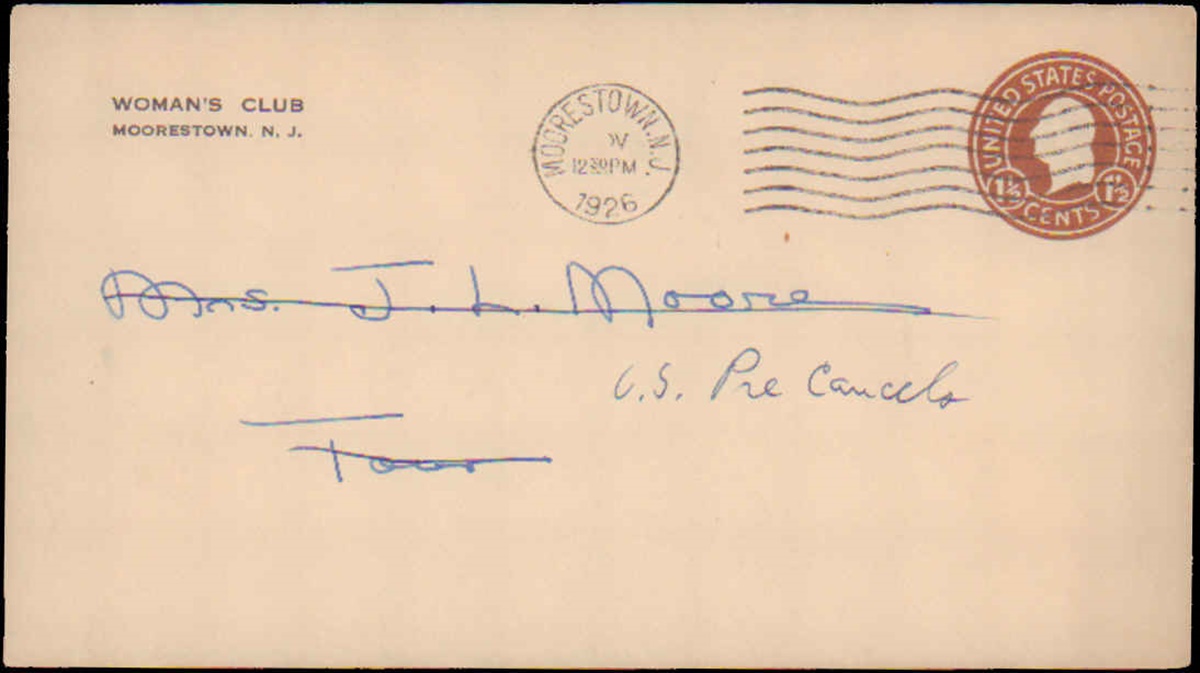 WOMAN'S CLUB
MOORESTOWN, N. J.
MOORESTOWN. N.J.
12 30 PM
1926
UNITED STATES POSTAGE
1½ 1½
CENTS
Mrs. J. L. Moore
U.S. Pre Cancels